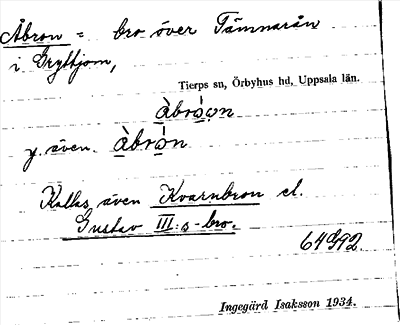 Åbron = bro över Tämnarån
i Gryttjom,
Tierps sn, Örbyhus hd, Uppsala län.
àbrón
y. även. àbròn
Kallas även Kvarnbron el.
Gustav III:s-bro.
64992.
Ingegärd Isaksson 1934.